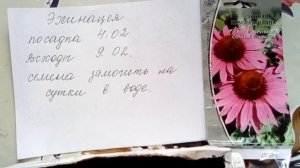 Эхинацея
посадка 4.02
Всходы 9.02.
семена замочить на
сутки в воде.